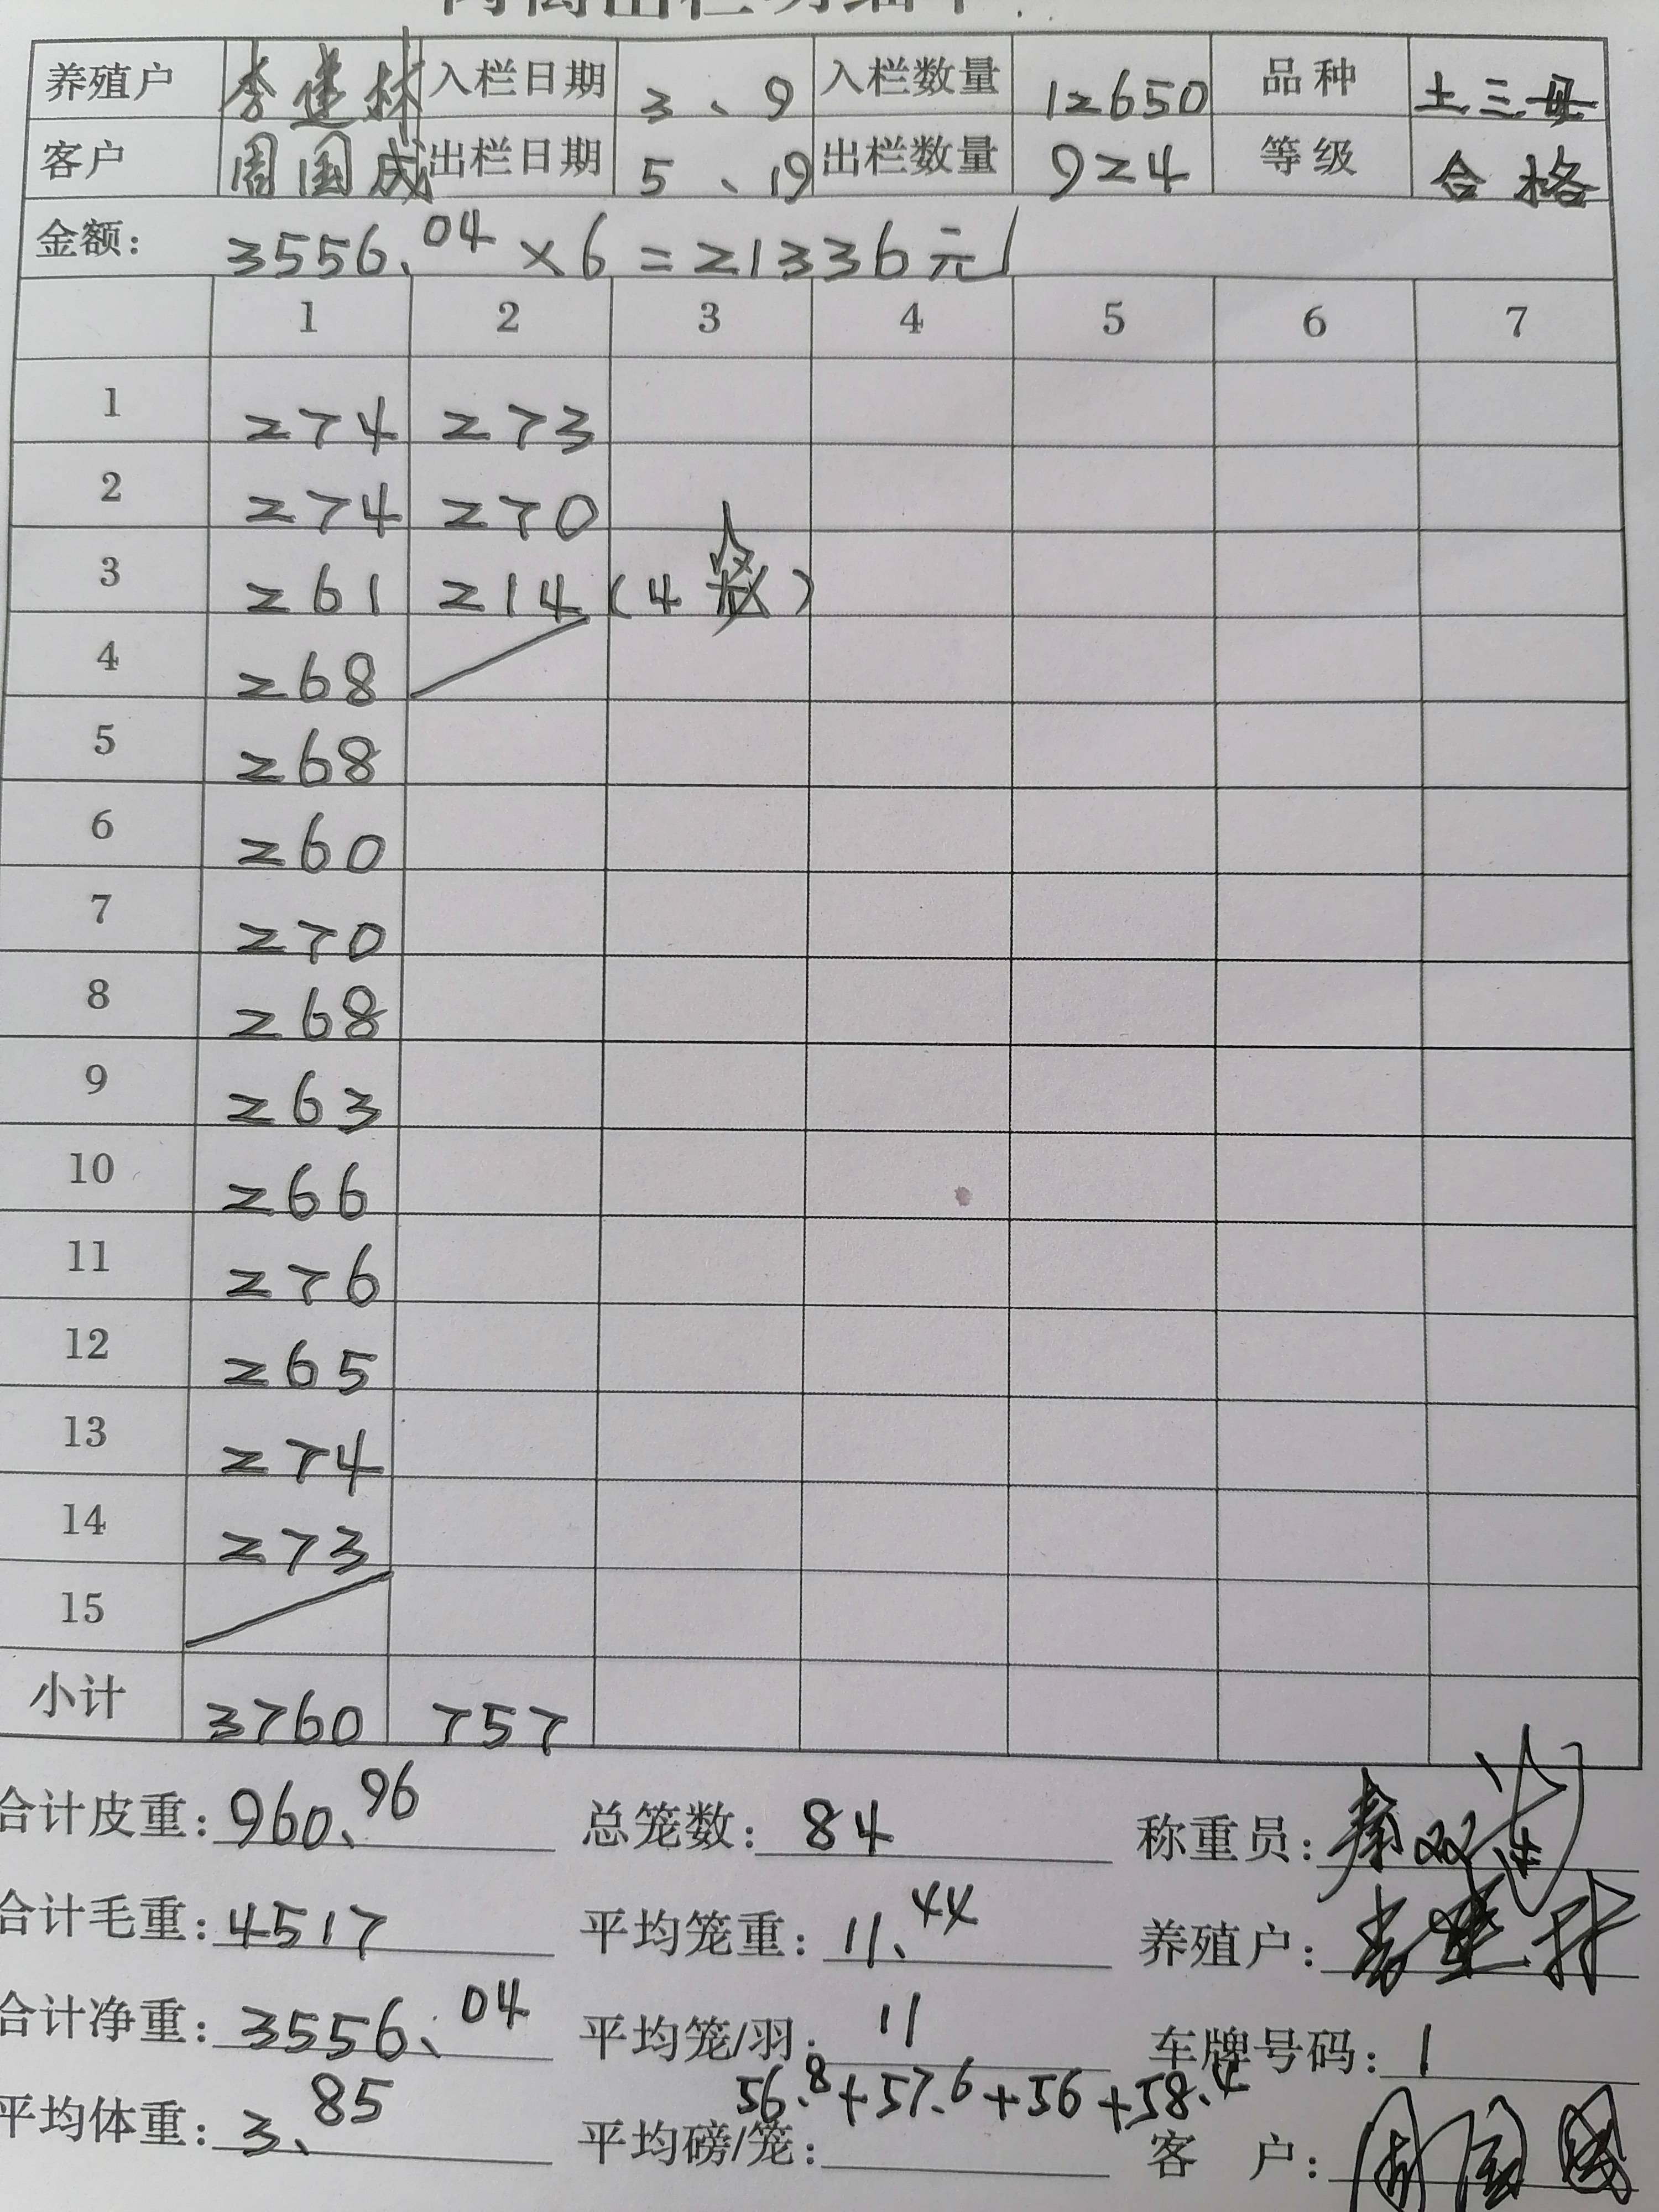 养殖户 李建林 入栏日期 3、9 入栏数量 12650 品种 土三母
客户 周国成 出栏日期 5、19 出栏数量 924 等级 合格
金额: 3556.04×6=21336元
1 2 3 4 5 6 7
1 274 273
2 274 270
3 261 214 (4笼)
4 268
5 268
6 260
7 270
8 268
9 263
10 266
11 276
12 265
13 274
14 273
15
小计 3760 757
合计皮重: 960.96 总笼数: 84 称重员:
合计毛重: 4517 平均笼重: 11.44 养殖户: 李建林
合计净重: 3556.04 平均笼/羽: 11 车牌号码: 1
56.8+57.6+56+58.4
平均体重: 3.85 平均磅/笼: 客 户: